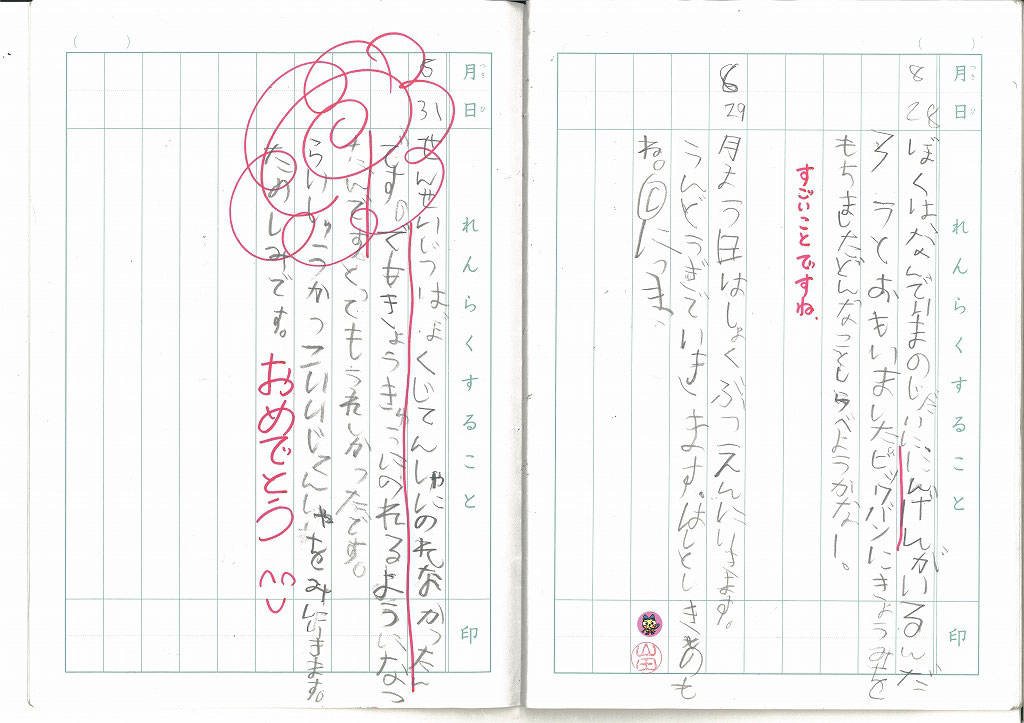 月 日 れんらくすること 印
8 28 ぼくはなんでいまのじだいににんげんがいるんだ
ろうとおもいましたビッグバンにきょうみを
もちましたどんなことしらべようかなー。
すごいことですね。
6 29 月よう日はしょくぶつえんにいきます。
うんどうぎでいきます。はとしきのも
ね。にっき
山田
月 日 れんらくすること 印
8 31 せんせいじつはぼくじてんしゃにのれなかったん
です。でもきょうきゅうにのれるようになっ
たんですとってもうれしかったです。
らいしゅうかっこいいじてんしゃをみにいきます。
たのしみです。
おめでとう